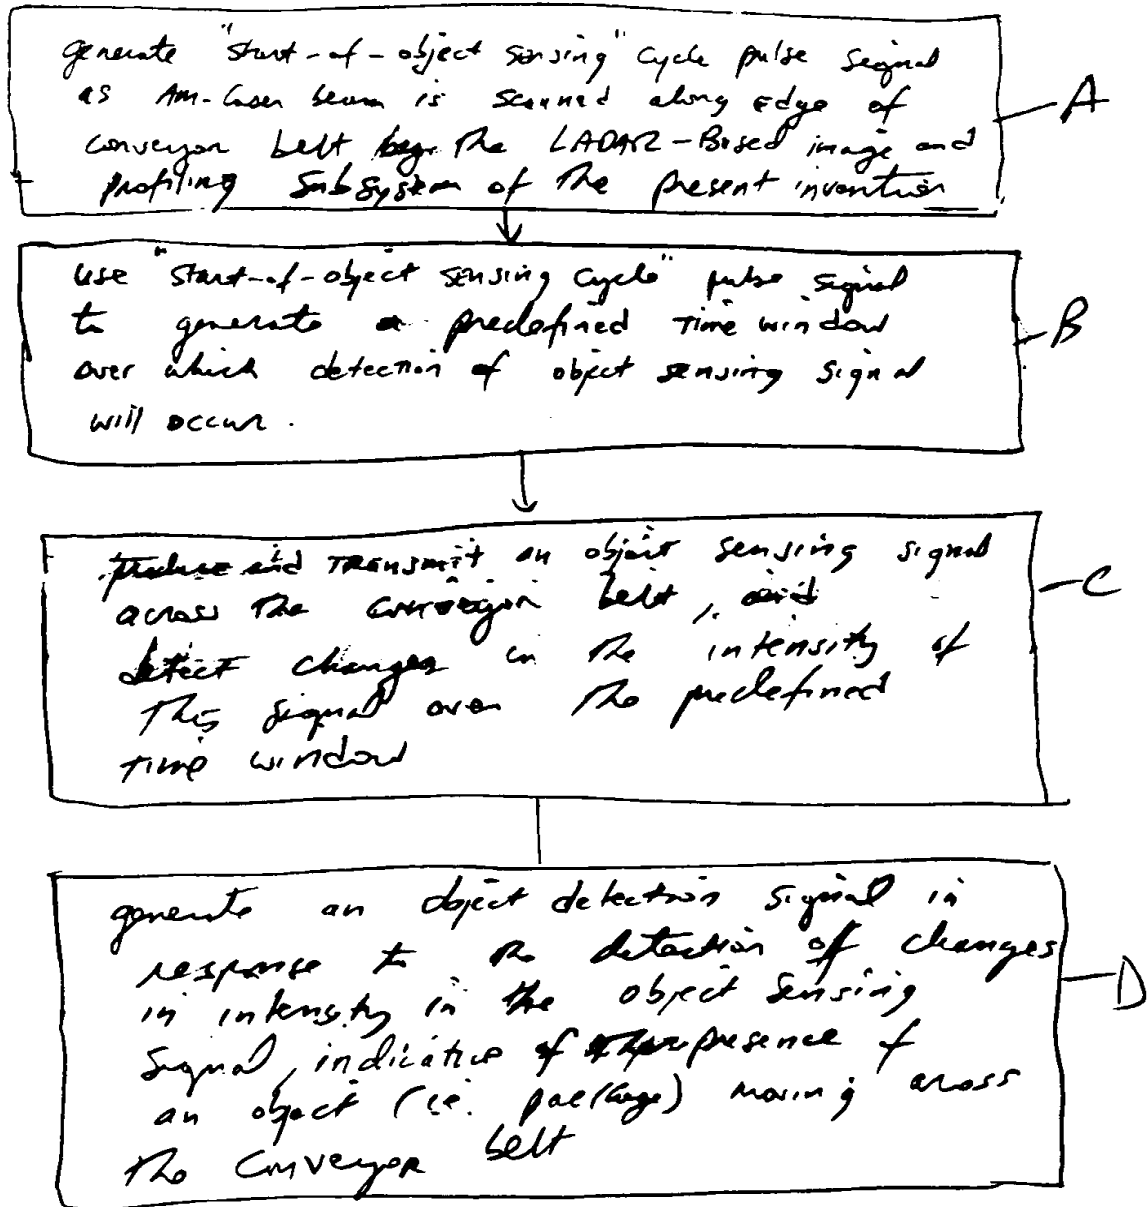 generate "start-of-object sensing" cycle pulse signal
as AM-laser beam is scanned along edge of
conveyor belt by the LADAR-Based image and
profiling subsystem of the present invention
A
use "start-of-object sensing cycle" pulse signal
to generate a predefined time window
over which detection of object sensing signal
will occur.
B
produce and TRANSMIT an object sensing signal
across the conveyor belt, and
detect changes in the intensity of
this signal over the predefined
time window
C
generate an object detection signal in
response to the detection of changes
in intensity in the object sensing
signal, indicative of the presence of
an object (i.e. package) moving across
the conveyor belt
D